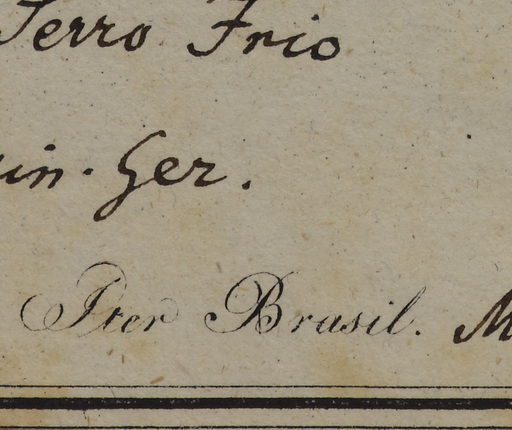 Serro Frio
in. Ger.
Iter Brasil. M